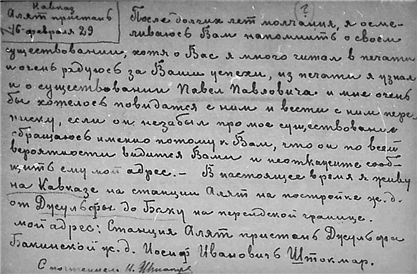 Кавказ
Алят пристань
16 февраля 29
(?)
После долгих лет молчания, я осме-
ливаюсь Вам напомнить о своем
существовании, хотя о Вас я много читал в печати
и очень радуюсь за Ваши успехи, из печати я узнал
и о существовании Павел Павловича и мне очень
бы хотелось повидатся с ним и вести с ним пере-
писку, если он незабыл про мое существование
обращаюсь именно потому к Вам, что он по всей
вероятности видится Вами и неоткажите сооб-
щить ему мой адрес. — В настоящее время я живу
на Кавказе на станции Алят на постройке ж. д.
от Джульфы до Баку на персидской границе.
мой адрес: Станция Алят пристань Джульфа
Бакинской ж. д. Иосиф Иванович Штокмар.
С почтением И. Штокмар